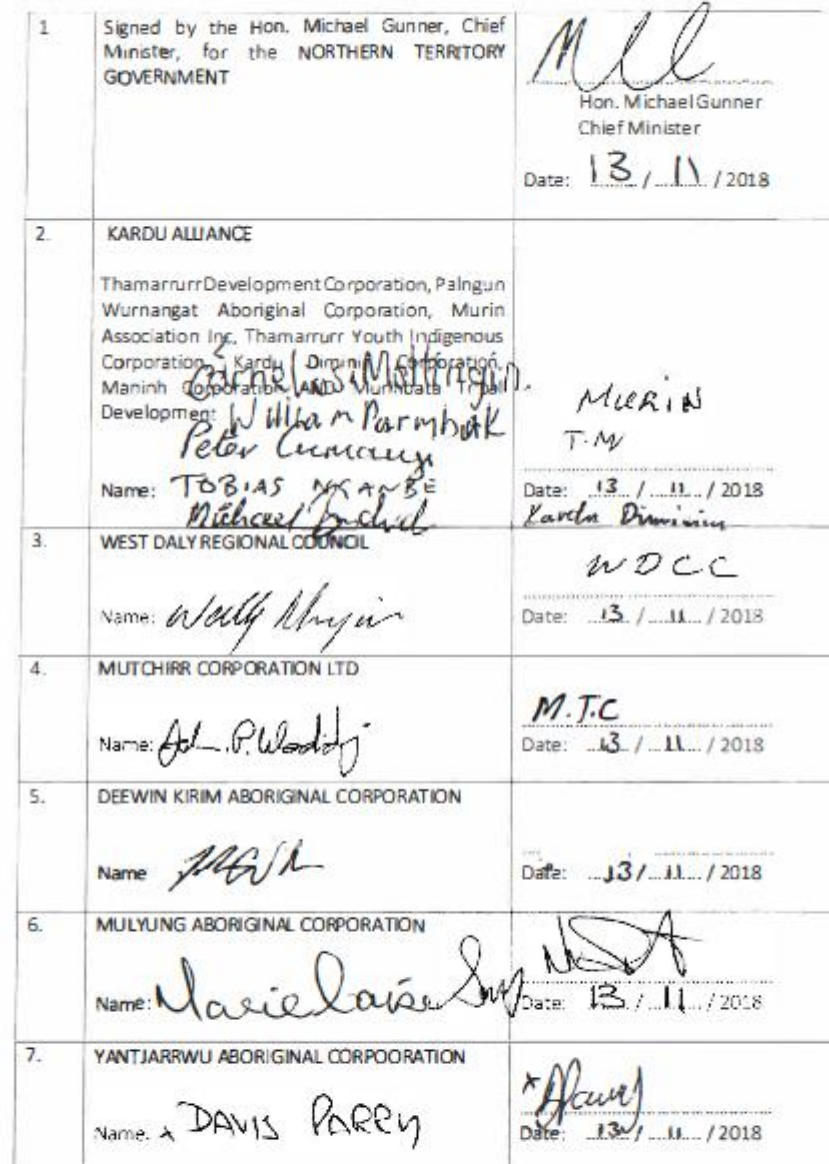 1
Signed by the Hon. Michael Gunner, Chief
Minister, for the NORTHERN TERRITORY
GOVERNMENT
Hon. Michael Gunner
Chief Minister
Date: 13 / 11 / 2018
2.
KARDU ALLIANCE
Thamarrurr Development Corporation, Palngun
Wurnangat Aboriginal Corporation, Murin
Association Inc, Thamarrurr Youth Indigenous
Corporation, Kardu Diminin Corporation,
Maninh Corporation AND Murinbata Tribal
Development
William Parmbuk
Peter
Name: TOBIAS NGANBE
Michael
MURIN
T.M
Date: 13 / 11 / 2018
Kardu Diminin
3.
WEST DALY REGIONAL COUNCIL
Name: Wally
WDCC
Date: 13 / 11 / 2018
4.
MUTCHIRR CORPORATION LTD
Name:
M.T.C
Date: 13 / 11 / 2018
5.
DEEWIN KIRIM ABORIGINAL CORPORATION
Name
Date: 13 / 11 / 2018
6.
MULYUNG ABORIGINAL CORPORATION
Name: Marie Louise
Date: 13 / 11 / 2018
7.
YANTJARRWU ABORIGINAL CORPOORATION
Name. x DAVIS PARRY
x
Date: 13 / 11 / 2018